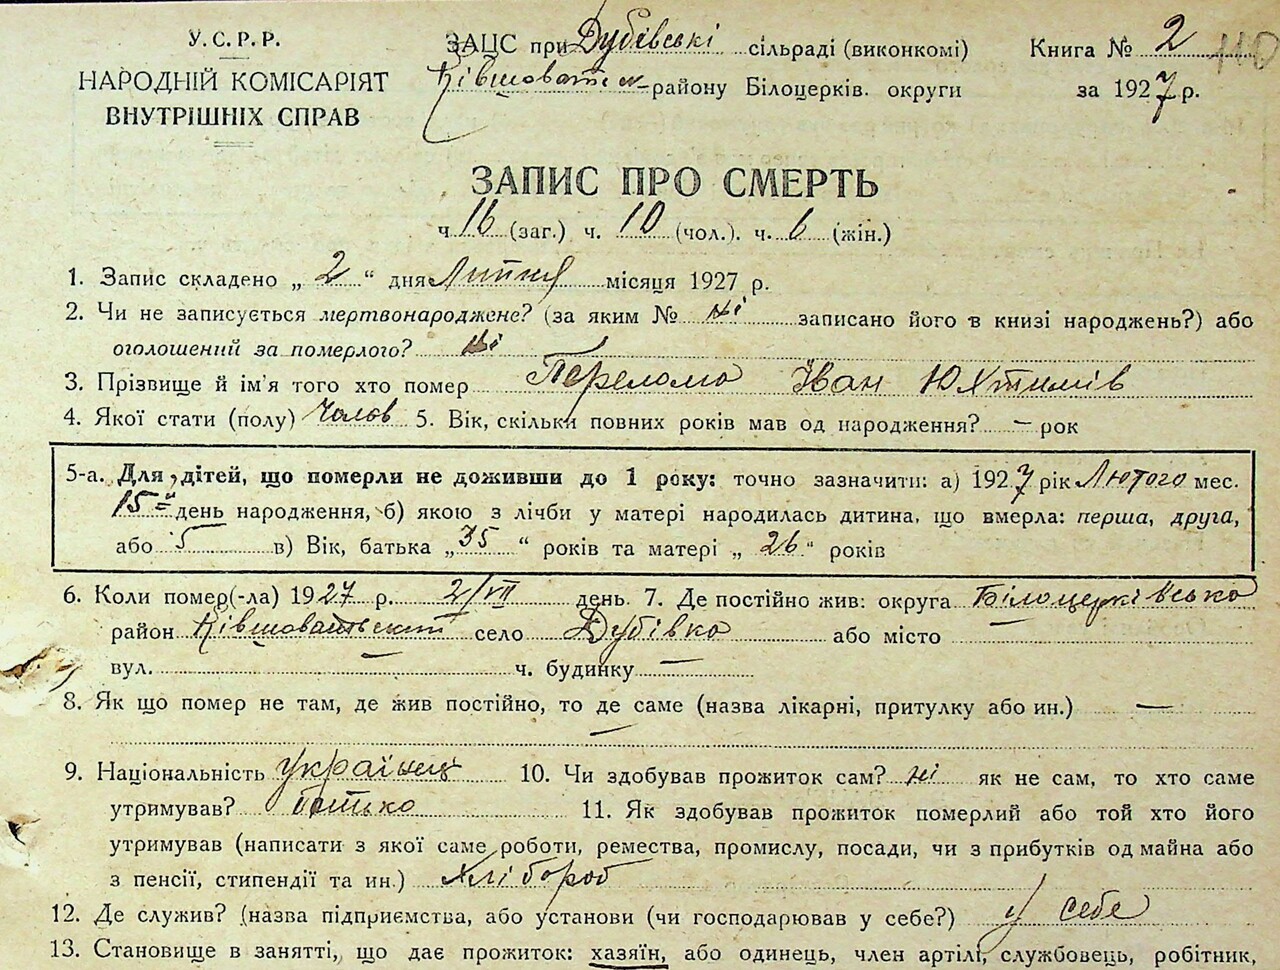 У.С.Р.Р.
НАРОДНІЙ КОМІСАРІЯТ
ВНУТРІШНІХ СПРАВ
ЗАЦС при Дубівські сільраді (виконкомі)
Ківшоватськ району Білоцерків. округи
Книга № 2 110
за 1927 р.
ЗАПИС ПРО СМЕРТЬ
ч 16 (заг.) ч. 10 (чол.). ч. 6 (жін.)
1. Запис складено „ 2 “ дня Липня місяця 1927 р.
2. Чи не записується мертвонароджене? (за яким № ні записано його в книзі народжень?) або
оголошений за померлого? ні
3. Прізвище й ім'я того хто помер Перелома Іван Юхтимів
4. Якої стати (полу) Чолов 5. Вік, скільки повних років мав од народження? — рок
5-а. Для дітей, що померли не доживши до 1 року: точно зазначити: а) 1927 рік Лютого мес.
15 день народження, б) якою з лічби у матері народилась дитина, що вмерла: перша, друга,
або 5 в) Вік, батька „ 35 “ років та матері „ 26 “ років
6. Коли помер(-ла) 1927 р. 2/VII день. 7. Де постійно жив: округа Білоцерківсько
район Ківшоватьский село Дубівко або місто —
вул. — ч. будинку —
8. Як що помер не там, де жив постійно, то де саме (назва лікарні, притулку або ин.) —
—
9. Національність українець 10. Чи здобував прожиток сам? ні як не сам, то хто саме
утримував? батько 11. Як здобував прожиток померлий або той хто його
утримував (написати з якої саме роботи, ремества, промислу, посади, чи з прибутків од майна або
з пенсії, стипендії та ин.) Хлібороб
12. Де служив? (назва підприємства, або установи (чи господарював у себе?) у себе
13. Становище в занятті, що дає прожиток: хазяїн, або одинець, член артілі, службовець, робітник,